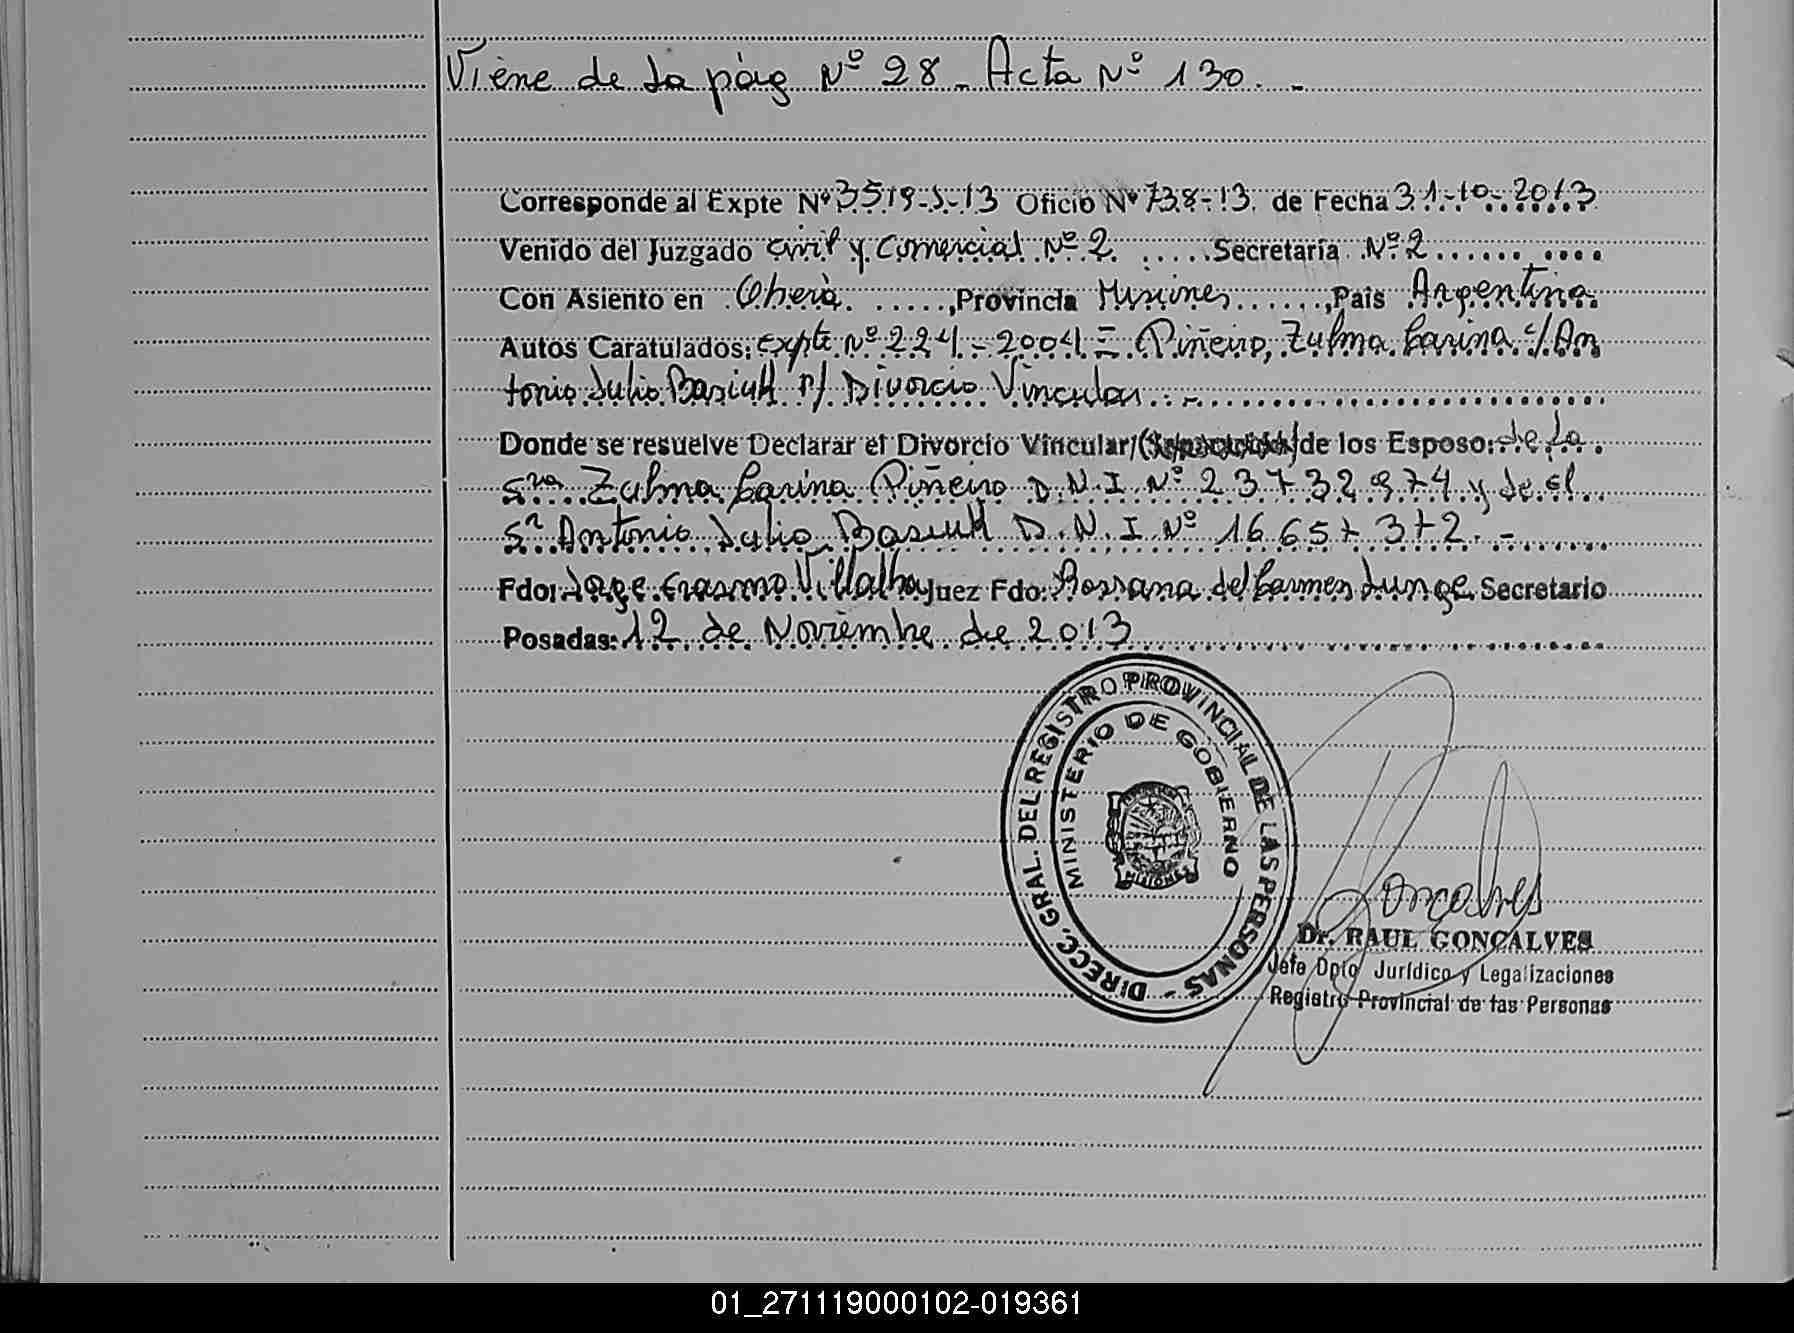 Viene de la pág Nº 28 - Acta Nº 130. -
Corresponde al Expte Nº 3519-J-13 Oficio Nº 738-13. de Fecha 31-10-2013
Venido del Juzgado Civil y Comercial Nº 2 ..... Secretaría Nº 2
Con Asiento en Oberá ....., Provincia Misiones ......, País Argentina
Autos Caratulados: Expte Nº 224-2004 Piñeiro, Zulma Carina c/ An
tonio Julio Basiuk s/ Divorcio Vincular. -
Donde se resuelve Declarar el Divorcio Vincular/( )/de los Esposo: de la
Sra Zulma Carina Piñeiro D.N.I. Nº 23732974 y de el
Sr Antonio Julio Basiuk D.N.I. Nº 16657372. -
Fdo: Jorge Erasmo Villalba Juez Fdo: Rossana del Carmen Junge Secretario
Posadas: 12 de Noviembre de 2013
DIRECC. GRAL. DEL REGISTRO PROVINCIAL DE LAS PERSONAS -
MINISTERIO DE GOBIERNO
MISIONES
Goncalves
Dr. RAUL GONCALVES
Jefe Dpto Jurídico y Legalizaciones
Registro Provincial de las Personas
01_271119000102-019361